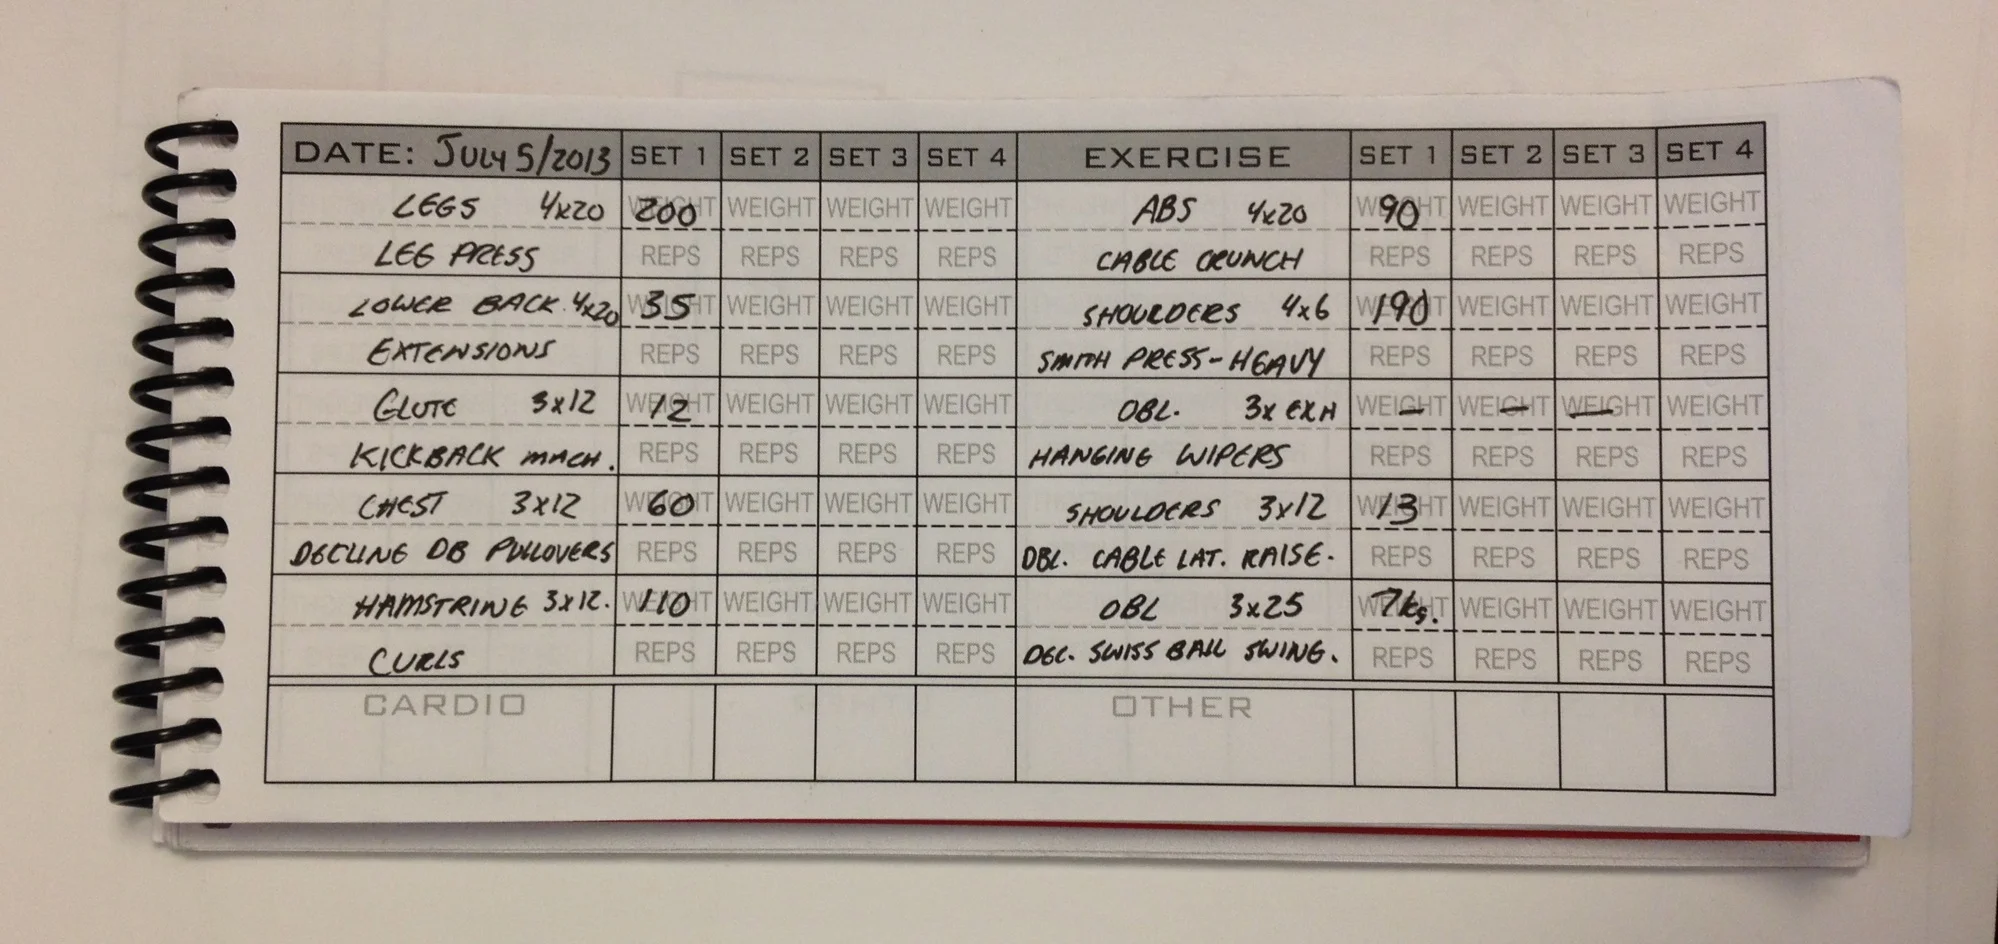 DATE: JULY 5/2013 SET 1 SET 2 SET 3 SET 4 EXERCISE SET 1 SET 2 SET 3 SET 4
LEGS 4x20 200 WEIGHT WEIGHT WEIGHT WEIGHT ABS 4x20 90 WEIGHT WEIGHT WEIGHT WEIGHT
LEG PRESS REPS REPS REPS REPS CABLE CRUNCH REPS REPS REPS REPS
LOWER BACK 4x20 35 WEIGHT WEIGHT WEIGHT WEIGHT SHOULDERS 4x6 190 WEIGHT WEIGHT WEIGHT WEIGHT
EXTENSIONS REPS REPS REPS REPS SMITH PRESS-HEAVY REPS REPS REPS REPS
GLUTE 3x12 12 WEIGHT WEIGHT WEIGHT WEIGHT OBL. 3x EXH WEIGHT – WEIGHT – WEIGHT – WEIGHT
KICKBACK MACH. REPS REPS REPS REPS HANGING WIPERS REPS REPS REPS REPS
CHEST 3x12 60 WEIGHT WEIGHT WEIGHT WEIGHT SHOULDERS 3x12 13 WEIGHT WEIGHT WEIGHT WEIGHT
DECLINE DB PULLOVERS REPS REPS REPS REPS DBL. CABLE LAT. RAISE. REPS REPS REPS REPS
HAMSTRING 3x12. 110 WEIGHT WEIGHT WEIGHT WEIGHT OBL 3x25 7kg. WEIGHT WEIGHT WEIGHT WEIGHT
CURLS REPS REPS REPS REPS DEC. SWISS BALL SWING. REPS REPS REPS REPS
CARDIO OTHER